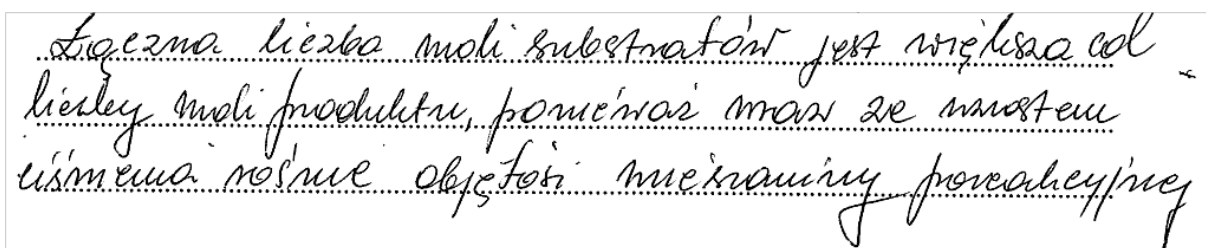 Łączna liczba moli substratów jest większa od
liczby moli produktu, ponieważ wraz ze wzrostem
ciśnienia rośnie objętość mieszaniny poreakcyjnej